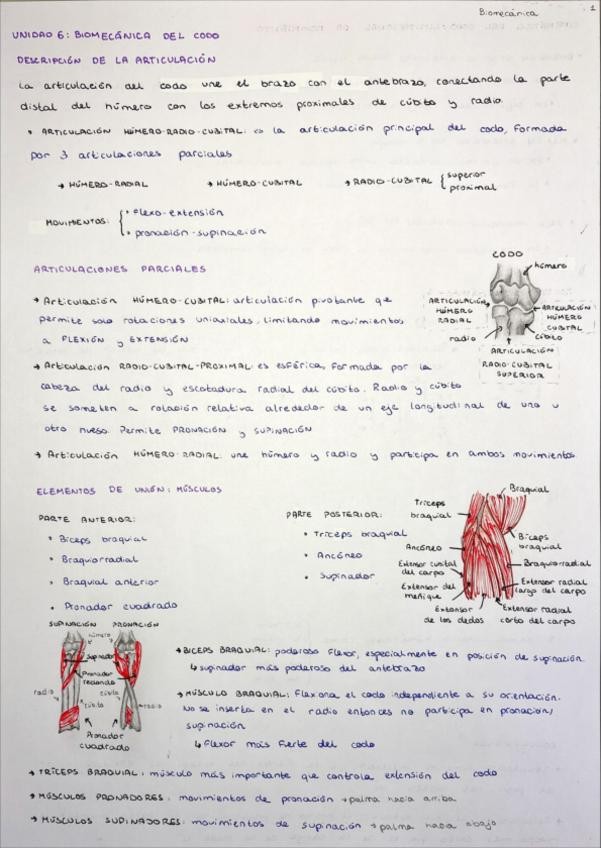 Biomecánica
1
UNIDAD 6: BIOMECÁNICA DEL CODO
DESCRIPCIÓN DE LA ARTICULACIÓN
La articulación del codo une el brazo con el antebrazo, conectando la parte
distal del húmero con los extremos proximales de cúbito y radio.
• ARTICULACIÓN HÚMERO-RADIO-CUBITAL: es la articulación principal del codo, formada
por 3 articulaciones parciales
→ HÚMERO-RADIAL → HÚMERO-CUBITAL → RADIO-CUBITAL { superior
proximal
MOVIMIENTOS: { • flexo-extensión
• pronación-supinación
ARTICULACIONES PARCIALES
→ Articulación HÚMERO-CUBITAL: articulación pivotante que
permite solo rotaciones uniaxiales, limitando movimientos
a FLEXIÓN y EXTENSIÓN
→ Articulación RADIO-CUBITAL-PROXIMAL es esférica, formada por la
cabeza del radio y escotadura radial del cúbito. Radio y cúbito
se someten a rotación relativa alrededor de un eje longitudinal de uno u
otro hueso. Permite PRONACIÓN y SUPINACIÓN
→ Articulación HÚMERO-RADIAL: une húmero y radio y participa en ambos movimientos.
CODO
húmero
ARTICULACIÓN
HÚMERO
RADIAL
ARTICULACIÓN
HÚMERO
CUBITAL
radio
cúbito
ARTICULACIÓN
RADIO-CUBITAL
SUPERIOR
ELEMENTOS DE UNIÓN: MÚSCULOS
PARTE ANTERIOR:
• Bíceps braquial
• Braquiorradial
• Braquial anterior
• Pronador cuadrado
PARTE POSTERIOR:
• Tríceps braquial
• Ancóneo
• Supinador
Braquial
Tríceps
braquial
Ancóneo
Extensor cubital
del carpo
Extensor del
meñique
Extensor
de los dedos
Bíceps
braquial
Braquiorradial
Extensor radial
largo del carpo
Extensor radial
corto del carpo
SUPINACIÓN PRONACIÓN
húmero
Supinador
Pronador
redondo
radio
cúbito
cúbito
radio
Pronador
cuadrado
→ BÍCEPS BRAQUIAL: poderoso flexor, especialmente en posición de supinación.
↳ supinador más poderoso del antebrazo
→ MÚSCULO BRAQUIAL: Flexiona el codo independiente a su orientación.
No se inserta en el radio entonces no participa en pronación/
supinación
↳ Flexor más fuerte del codo
→ TRÍCEPS BRAQUIAL: músculo más importante que controla extensión del codo
→ MÚSCULOS PRONADORES: movimientos de pronación → palma hacia arriba
→ MÚSCULOS SUPINADORES: movimientos de supinación → palma hacia abajo